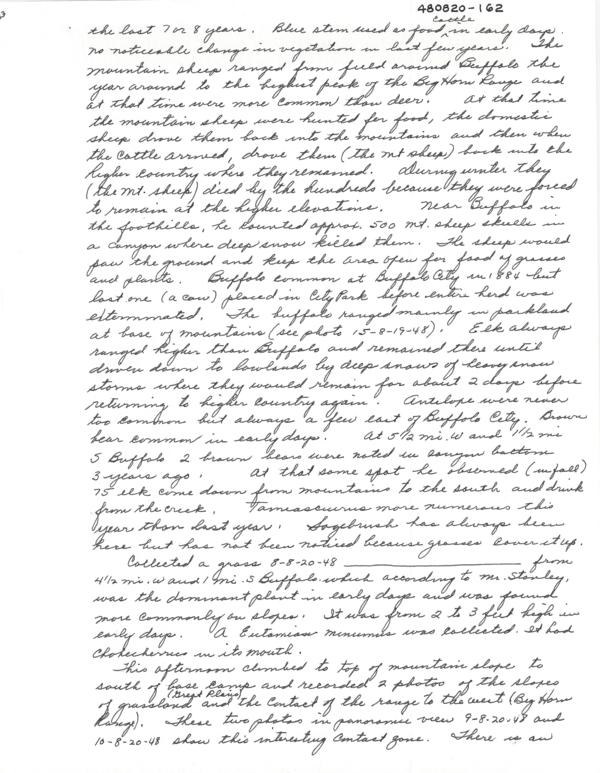 480820-162
the last 7 or 8 years. Blue stem used as food in early days.
cattle
no noticeable change in vegetation in last few years. The
mountain sheep ranged from field around Buffalo the
year around to the highest peak of the Big Horn Range and
at that time were more common than deer. At that time
the mountain sheep were hunted for food, the domestic
sheep drove them back into the mountains and then when
the cattle arrived, drove them (the mt sheep) back into the
higher country where they remained. During winter they
(the mt. sheep) died by the hundreds because they were forced
to remain at the higher elevations. Near Buffalo in
the foothills, he counted approx. 500 mt. sheep skulls in
a canyon where deep snow killed them. The sheep would
paw the ground and keep the area open for food of grasses
and plants. Buffalo common at Buffalo City in 1884 but
last one (a cow) placed in City Park before entire herd was
exterminated. The buffalo ranged mainly in parkland
at base of mountains (see photo 15-8-19-48). Elk always
ranged higher than Buffalo and remained there until
driven down to lowlands by deep snows of heavy snow
storms where they would remain for about 2 days before
returning to higher country again. Antelope were never
too common but always a few east of Buffalo City. Brown
bear common in early days. At 5 1/2 mi. W and 1 1/2 mi
S Buffalo 2 brown bears were noted in canyon bottom
3 years ago. At that same spot he observed (in fall)
75 elk come down from mountains to the south and drink
from the creek. Tamiasciurus more numerous this
year than last year. Sagebrush has always been
here but has not been noticed because grasses cover it up.
Collected a grass 8-8-20-48 from
4 1/2 mi. W and 1 mi. S Buffalo which according to Mr. Stanley,
was the dominant plant in early days and was found
more commonly on slopes. It was from 2 to 3 feet high in
early days. A Eutamias minumus was collected. It had
Chokecherries in its mouth.
This afternoon climbed to top of mountain slope to
south of base camp and recorded 2 photos of the slopes
(Great Plains)
of grassland and the contact of the range to the west (Big Horn
Range). These two photos in panoramic view 9-8-20-48 and
10-8-20-48 show this interesting contact zone. There is an